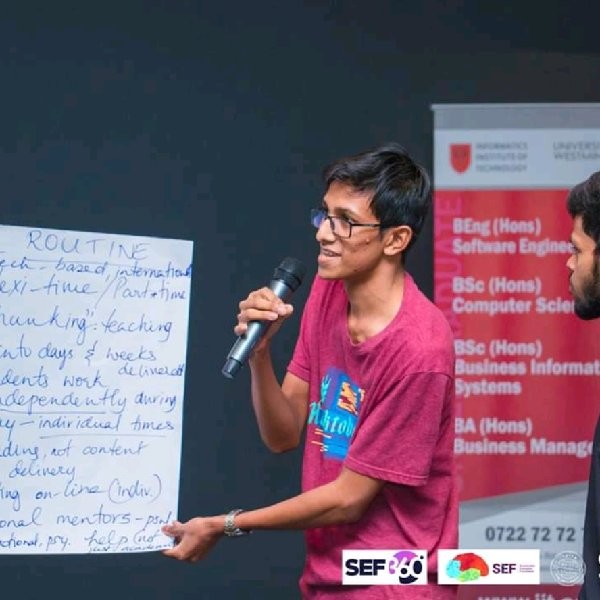 ROUTINE
based, international
exi-time / Part-time
hunking": teaching
into days & weeks
delivered
dents work
ndependently during
y - individual times
ding, not content
delivery
ing on-line (indiv.)
onal mentors -
help (not
just academic
INFORMATICS
INSTITUTE OF
TECHNOLOGY
UNIVERSI
WESTMIN
BEng (Hons)
Software Enginee
BSc (Hons)
Computer Scien
BSc (Hons)
Business Informat
Systems
BA (Hons)
Business Manage
0722 72 72
SEF 360°
SEF